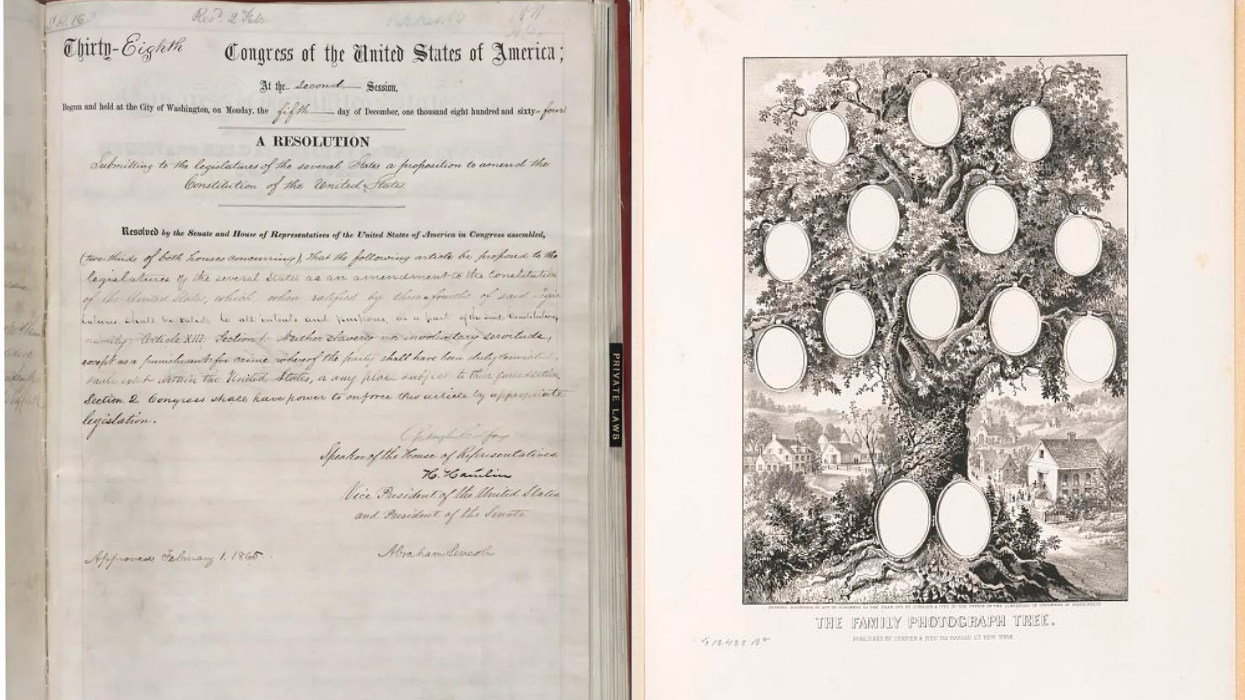 S.R. 16
Thirty-Eighth Congress of the United States of America;
At the second Session,
Begun and held at the City of Washington, on Monday, the fifth day of December, one thousand eight hundred and sixty-four
A RESOLUTION
Submitting to the legislatures of the several States a proposition to amend the
Constitution of the United States
Resolved by the Senate and House of Representatives of the United States of America in Congress assembled,
(two-thirds of both houses concurring), that the following article be proposed to the
legislatures of the several States as an amendment to the Constitution
of the United States, which, when ratified by three-fourths of said legis-
latures shall be valid, to all intents and purposes, as a part of the said Constitution,
namely: Article XIII. Section 1. Neither slavery nor involuntary servitude,
except as a punishment for crime whereof the party shall have been duly convicted,
shall exist within the United States, or any place subject to their jurisdiction.
Section 2. Congress shall have power to enforce this article by appropriate
legislation.
Schuyler Colfax
Speaker of the House of Representatives
H. Hamlin
Vice President of the United States
and President of the Senate
Approved February 1, 1865
Abraham Lincoln
PRIVATE LAWS
THE FAMILY PHOTOGRAPH TREE.
PUBLISHED BY CURRIER & IVES 125 NASSAU ST NEW YORK